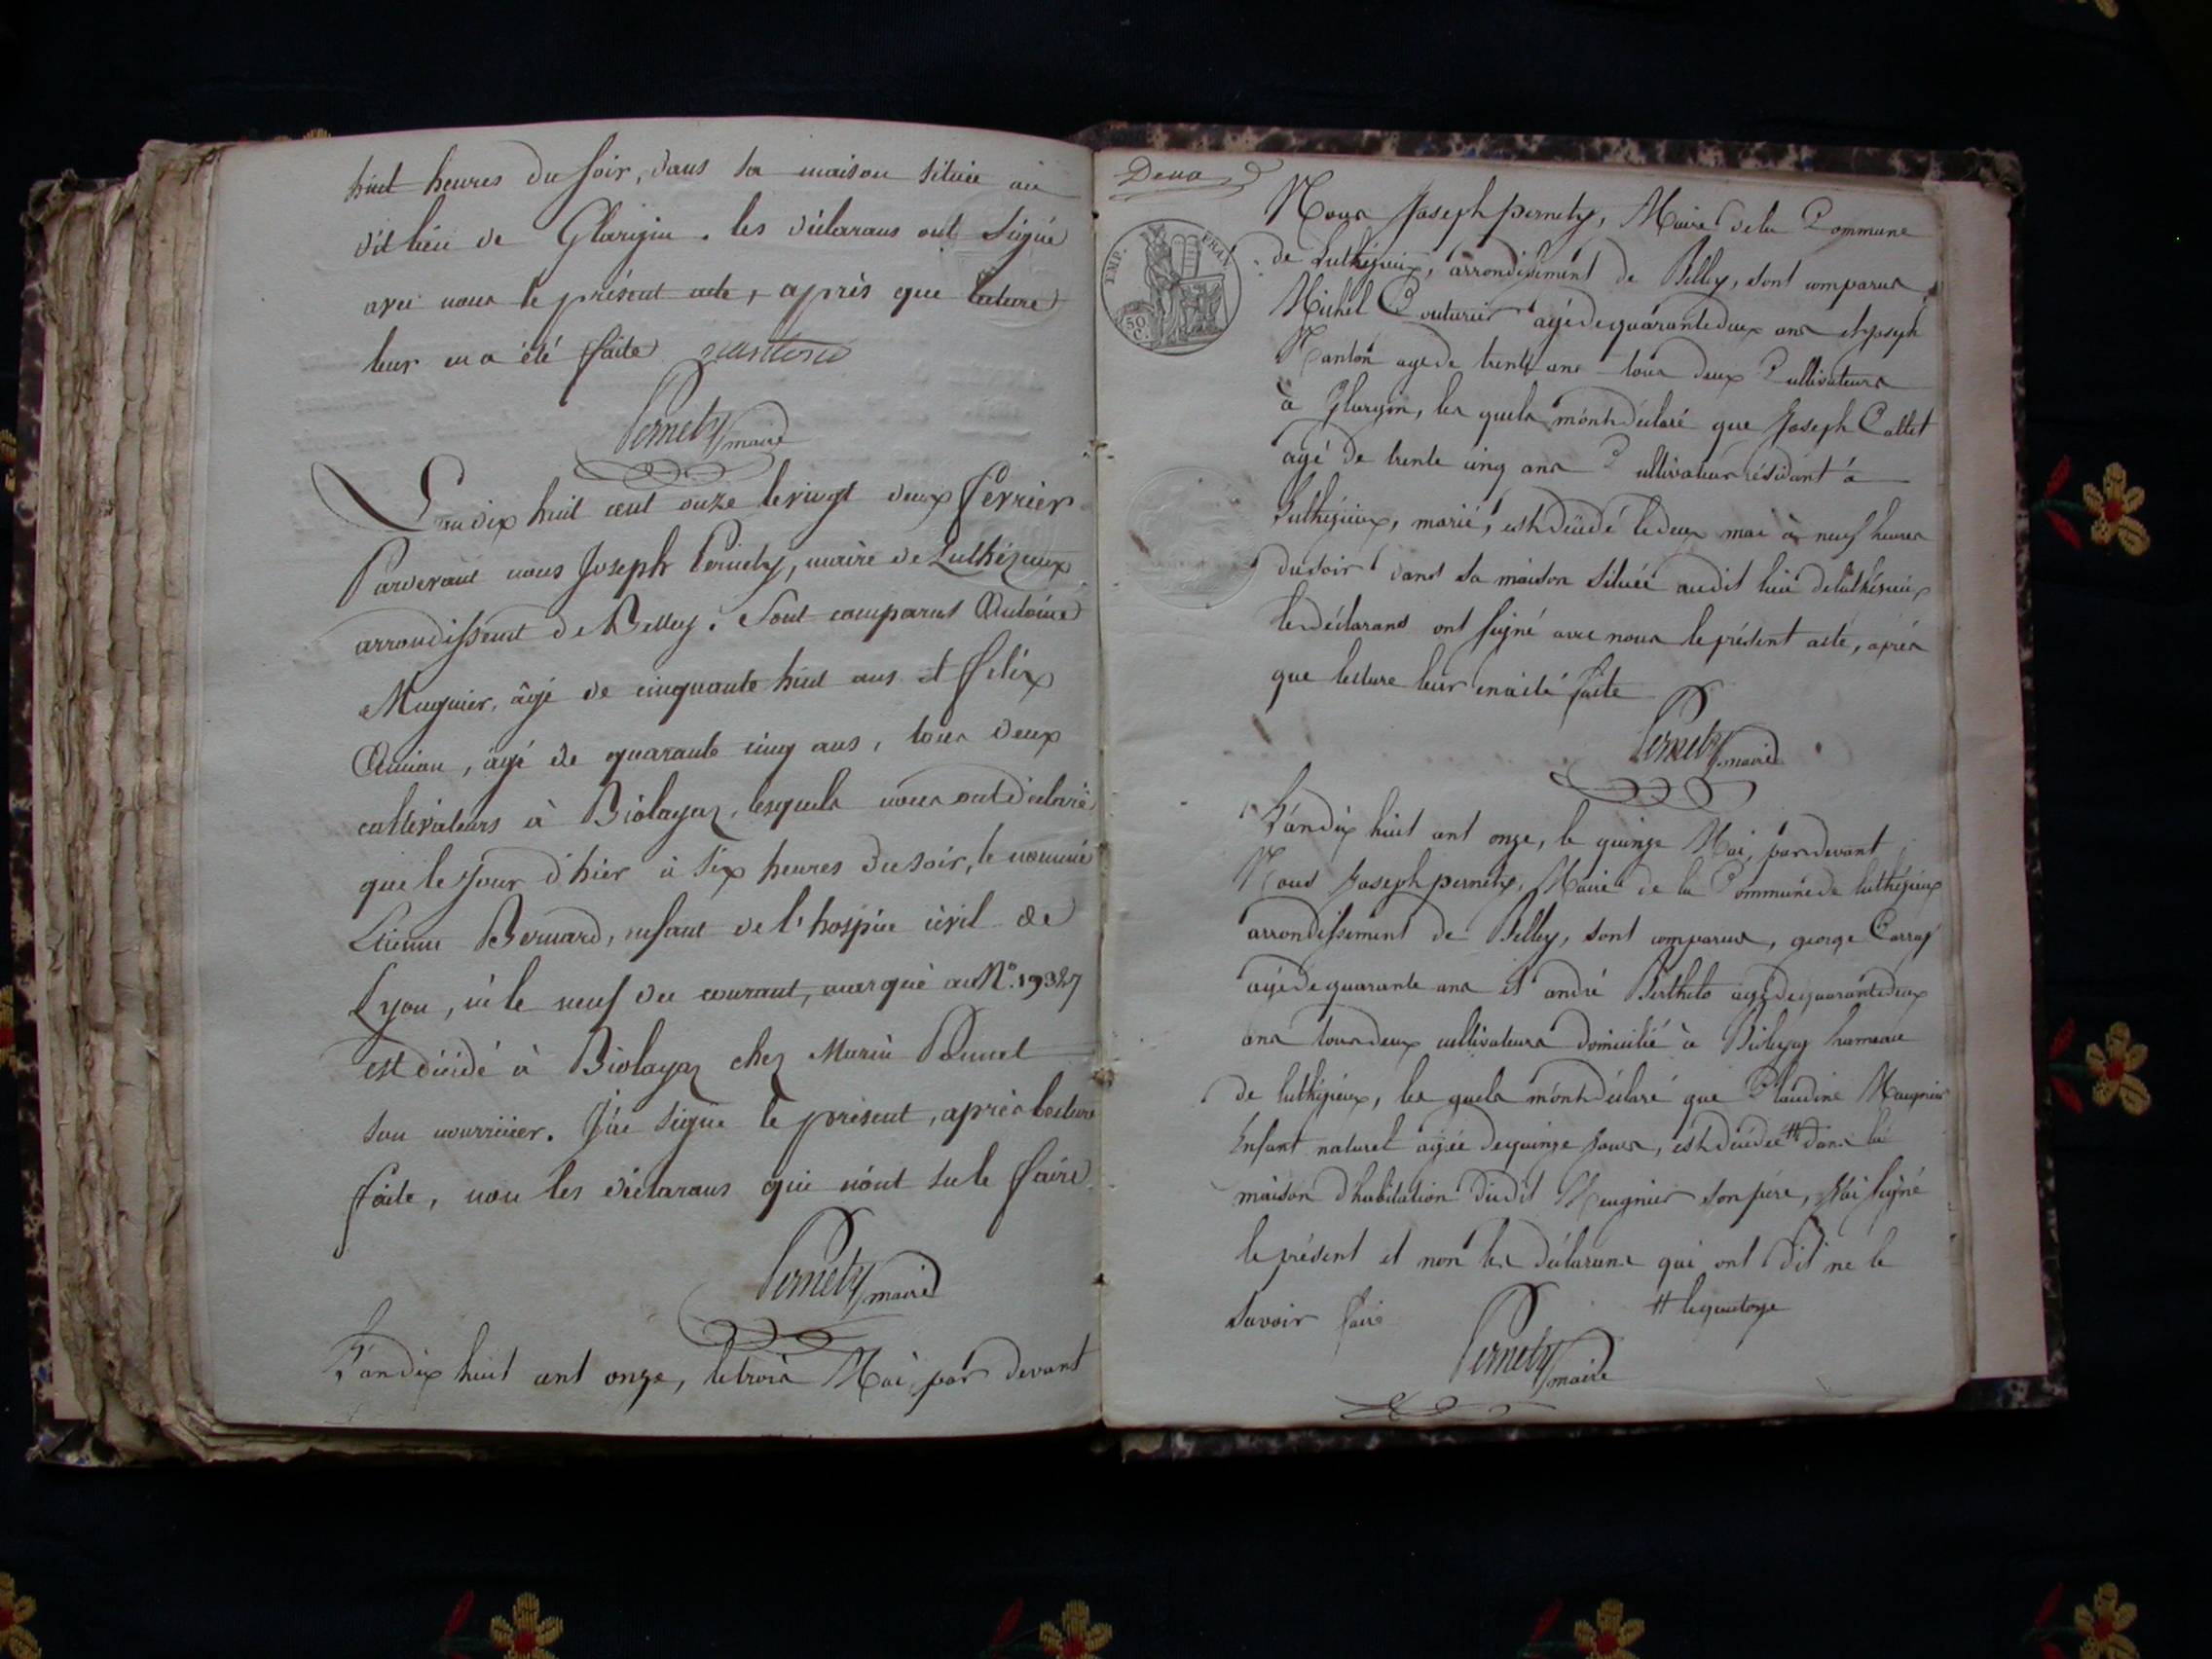 huit heures du soir, dans sa maison située au
dit lieu de Glargin. les déclarans ont signé
avec nous le présent acte, après que lecture
leur en a été faite
Pernety maire
L'an dix huit cent onze le vingt deux fevrier
Pardevant nous Joseph Pernety, maire de Luthézieux
arrondissement de Belley. Sont comparus Antoine
Mugnier, âgé de cinquante huit ans et felix
âgé de quarante cinq ans, tous deux
cultivateurs à Biolayaz, lesquels nous ont déclaré
que le jour d'hier à six heures du soir, le nommé
Etienne Bernard, enfant de l'hospice civil de
Lyon, né le neuf du courant, marqué au N°. 19327
est décédé à Biolayaz chez Marin
son nourricier. J'ai signé le présent, après lecture
faite, non les déclarans qui n'ont su le faire
Pernety maire
L'an dix huit cent onze, le trois Mai, par devant
Deux
EMP. FRAN.
50 C.
Nous Joseph pernety, Maire de la Commune
de Luthézieux, arrondissement de Belley, sont comparus
Michel Couturier agé de quarante deux ans et joseph
Nanton agé de trente ans tous deux Cultivateurs
à Glargin, les quels m'ont déclaré que Joseph Callet
agé de trente cinq ans Cultivateur résidant à
Luthézieux, marié, est décédé le deux mai à neuf heures
du soir dans sa maison située audit lieu de luthézieux
les déclarans ont signé avec nous le présent acte, après
que lecture leur en a été faite
Pernety maire
L'an dix huit cent onze, le quinze Mai, pardevant
Nous Joseph pernety, Maire de la Commune de luthézieux
arrondissement de Belley, sont comparus, george Carraz
agé de quarante ans et andré Berthelo agé de quarante deux
ans tous deux cultivateurs domicilié à Biolayaz hameau
de luthézieux, les quels m'ont déclaré que Claudine Meugnier
Enfant naturel agée de quinze jours, est décédée # dans la
maison d'habitation dudit Meugnier son père, J'ai signé
le présent et non les déclarans qui ont dit ne le
savoir faire # le quatorze
Pernety maire